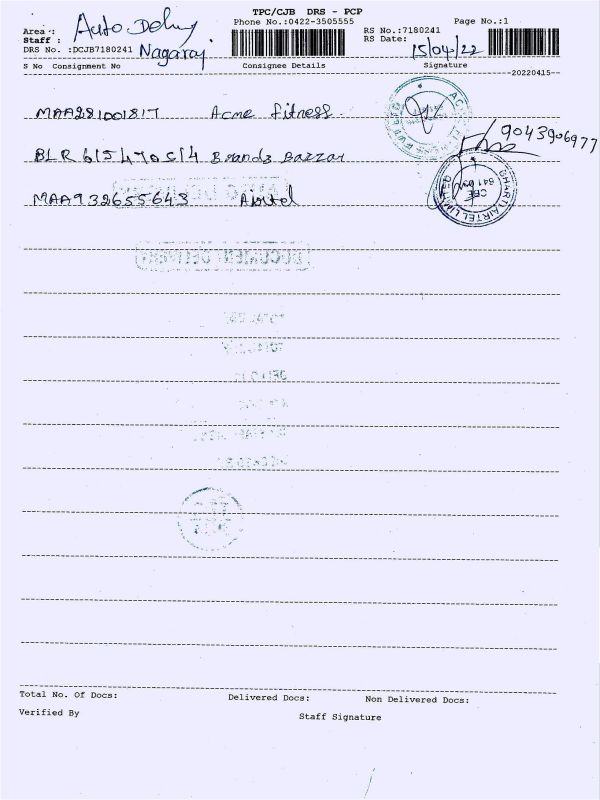 TPC/CJB DRS - PCP
Phone No.:0422-3505555
Page No.:1
Area :
Auto
Staff :
Nagaraj
DRS No. :DCJB7180241
RS No.:7180241
RS Date:
15/04/22
S No Consignment No
Consignee Details
Signature
20220415
MAA281001817 Acme fitness
9043906977
BLR 615470514 Brands Bazzar
BHARTI AIRTEL LIMITED
CBE
MAA932655643 Airtel
DOCUMENT DELIVERY
Total No. Of Docs:
Delivered Docs:
Non Delivered Docs:
Verified By
Staff Signature